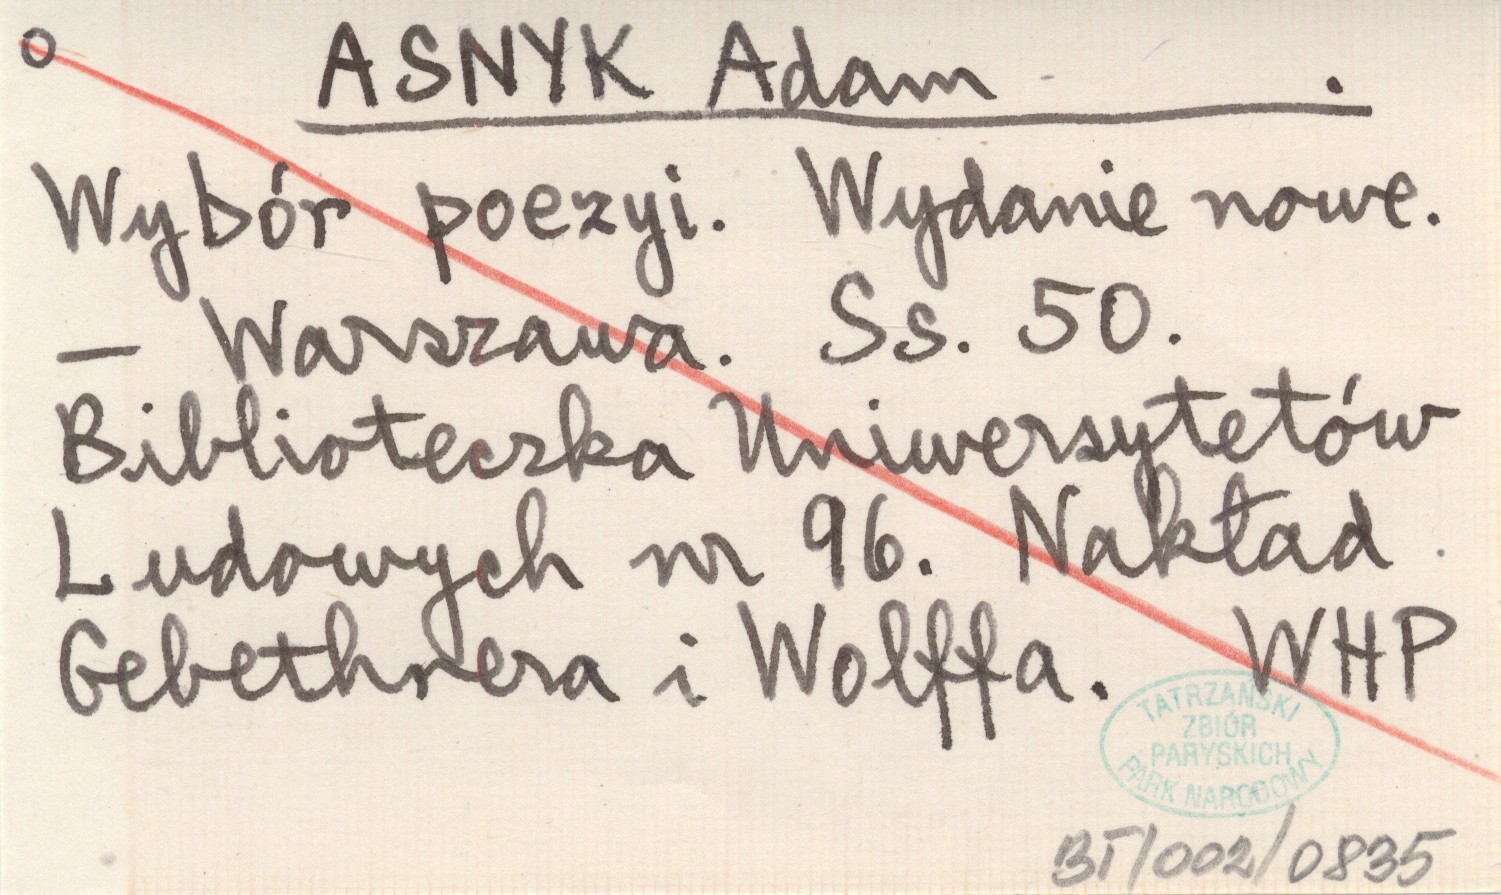 o ASNYK Adam .
Wybór poezyi. Wydanie nowe.
— Warszawa. Ss. 50.
Biblioteczka Uniwersytetów
Ludowych nr 96. Nakład
Gebethnera i Wolffa. WHP
TATRZAŃSKI
ZBIÓR
PARYSKICH
PARK NARODOWY
BT/002/0835